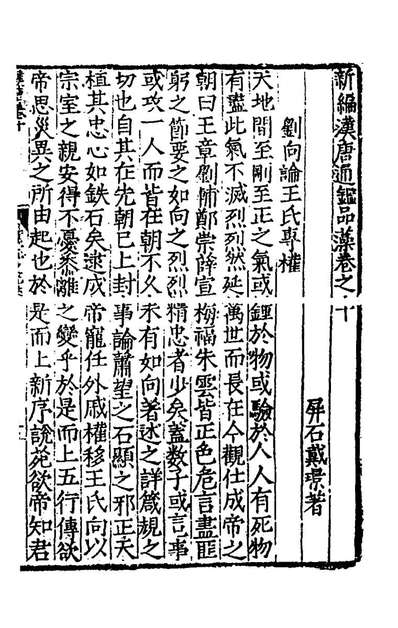 新編漢唐通鑑品藻卷之十
屏石戴璟著
劉向論王氏專權
天地間至剛至正之氣或鍾於物或驗於人人有死物
有盡此氣不滅烈烈然延萬世而長在今觀仕成帝之
朝曰王章劉輔鄭崇薛宣梅福朱雲皆正色危言盡匪
躬之節要之如向之烈烈精忠者少矣蓋數子或言事
或攻一人而皆在朝不久未有如向著述之詳箴規之
切也自其在先朝已上封事論蕭望之石顯之邪正天
植其忠心如鉄石矣逮成帝寵任外戚權移王氏向以
宗室之親安得不憂黍離之變乎於是而上五行傳欲
帝思災異之所由起也於是而上新序說苑欲帝知君